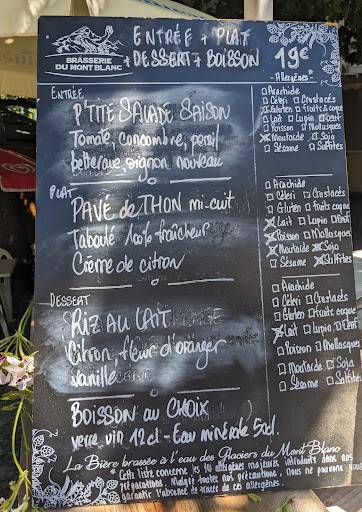 BRASSERIE
DU MONT BLANC
ENTRÉE + PLAT
+ DESSERT + BOISSON
19€
- Allergènes -
ENTRÉE
P'TITE SALADE SAISON
Tomate, concombre, persil
betterave, oignon nouveau
Arachide
Céleri Crustacés
Gluten fruits à coque
Lait Lupin Oeuf
Poisson Mollusques
Moutarde Soja
Sésame Sulfites
PLAT
PAVÉ de THON mi-cuit
Taboulé 100% fraîcheur
Crème de citron
Arachide
Céleri Crustacés
Gluten fruits coque
Lait Lupin
Poisson Mollusques
Moutarde Soja
Sésame Sulfites
DESSERT
RIZ AU LAIT
Citron, fleur d'oranger
Vanille
Arachide
Céleri Crustacés
Gluten fruits coque
Lait Lupin
Poisson Mollusques
Moutarde Soja
Sésame Sulfites
BOISSON AU CHOIX
verre vin 12cl - Eau minérale 50cl.
La Bière brassée à l'eau des Glaciers du Mont Blanc
Cette liste concerne les 14 allergènes majeurs introduits dans nos
préparations. Malgré toutes nos précautions, nous ne pouvons
garantir l'absence de traces de ces allergènes.